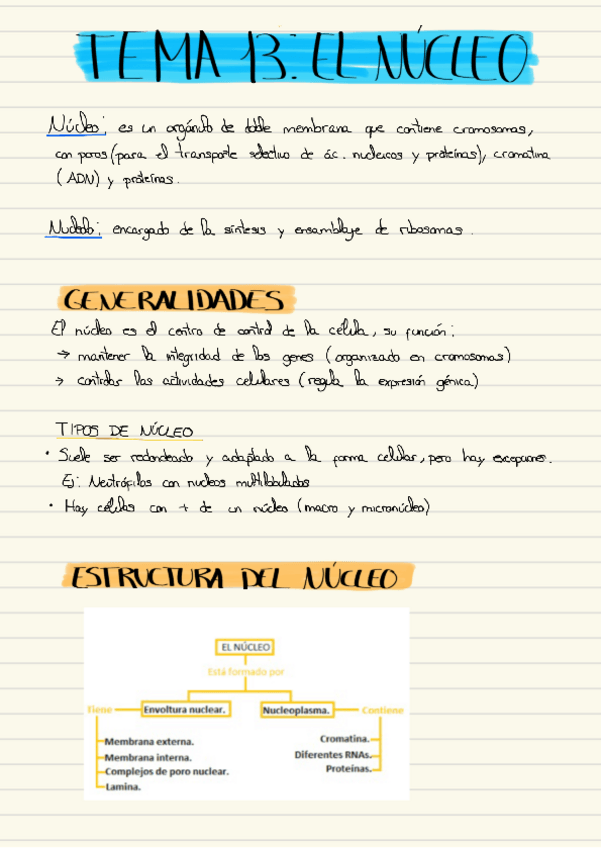 TEMA 13: EL NÚCLEO
Núcleo: es un orgánulo de doble membrana que contiene cromosomas,
con poros (para el transporte selectivo de ác. nucleicos y proteínas), cromatina
(ADN) y proteínas.
Nucleolo: encargado de la síntesis y ensamblaje de ribosomas.
GENERALIDADES
El núcleo es el centro de control de la célula, su función:
→ mantener la integridad de los genes (organizado en cromosomas)
→ controlar las actividades celulares (regula la expresión génica)
TIPOS DE NÚCLEO
• Suele ser redondeado y adaptado a la forma celular, pero hay excepciones.
Ej: Neutrófilos con nucleos multilobulados
• Hay células con + de un núcleo (macro y micronúcleo)
ESTRUCTURA DEL NÚCLEO
EL NÚCLEO
Está formado por
Tiene Envoltura nuclear. Nucleoplasma. Contiene
Membrana externa.
Membrana interna.
Complejos de poro nuclear.
Lamina.
Cromatina.
Diferentes RNAs.
Proteínas.